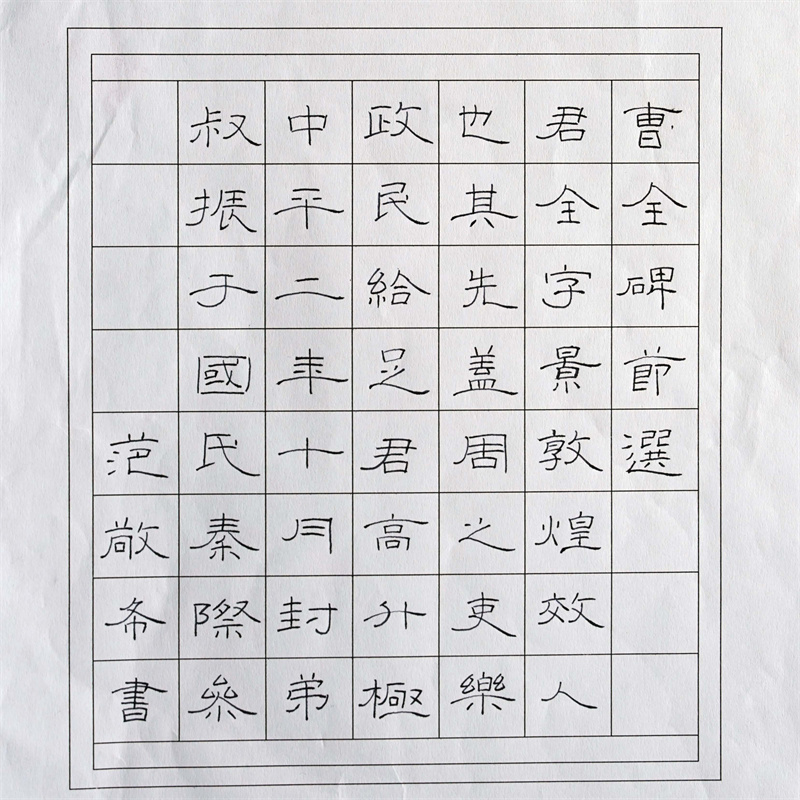 曹全碑節選
君全字景敦煌效人
也其先盖周之吏樂
政民給足君高升極
中平二年十月封弟
叔振于國氏秦際
范書